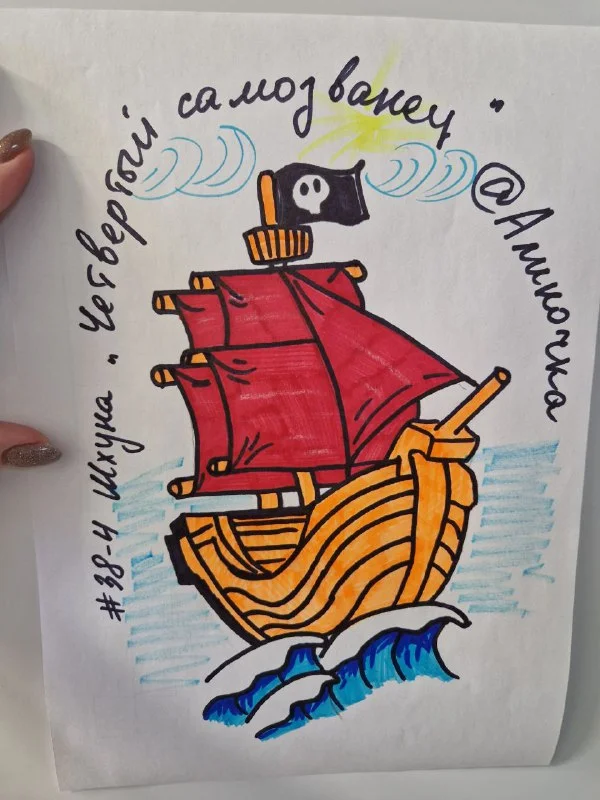 #38-4 Шхуна "Четвертый самозванец"
@Алиночка